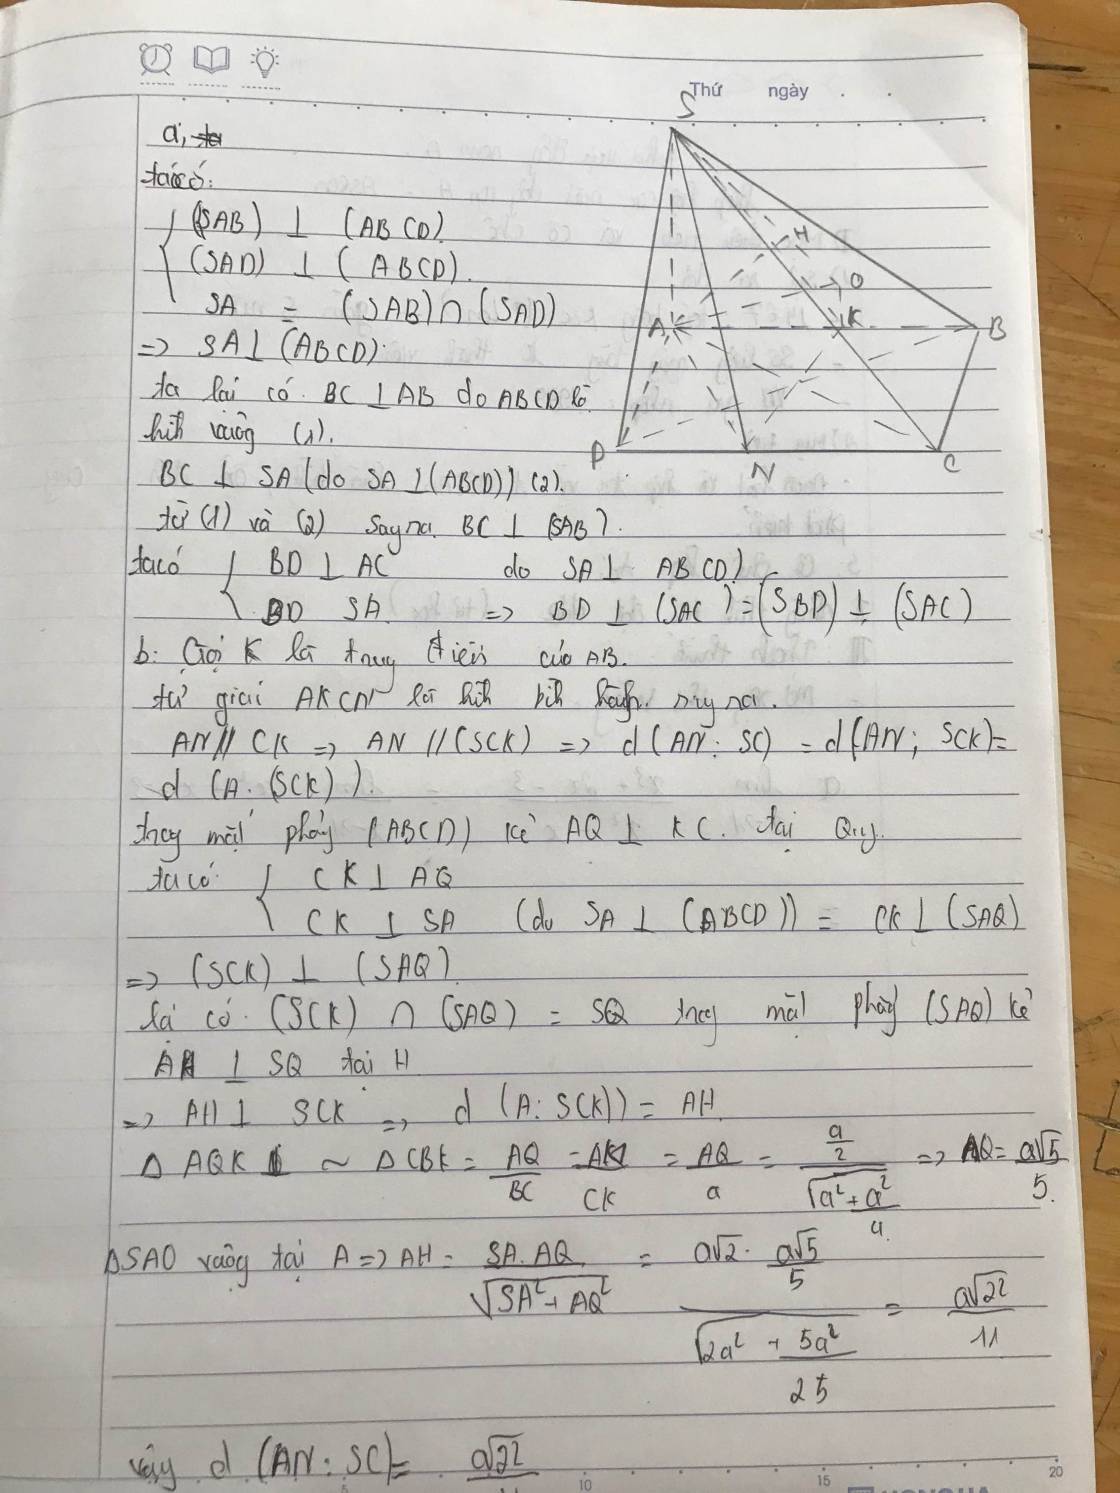 Thứ ngày . .
a,
ta có:
(SAB) ⊥ (ABCD)
(SAD) ⊥ (ABCD).
SA = (SAB) ∩ (SAD)
=> SA ⊥ (ABCD).
ta lại có BC ⊥ AB do ABCD là
hình vuông (1).
BC ⊥ SA (do SA ⊥ (ABCD)) (2).
từ (1) và (2) suy ra BC ⊥ (SAB).
ta có { BD ⊥ AC do SA ⊥ ABCD)
BD SA. => BD ⊥ (SAC) = (SBD) ⊥ (SAC)
b: Gọi K là trung điểm của AB.
tứ giác AKCN là hình bình hành. suy ra.
AN // CK => AN // (SCK) => d(AN; SC) = d(AN; SCK) =
d (A. (SCK)).
trong mặt phẳng (ABCD) kẻ AQ ⊥ KC. tại Q
ta có { CK ⊥ AQ
CK ⊥ SA (do SA ⊥ (ABCD)) = CK ⊥ (SAQ)
=> (SCK) ⊥ (SAQ)
lại có (SCK) ∩ (SAQ) = SQ trong mặt phẳng (SAQ) kẻ
AH ⊥ SQ tại H
=> AH ⊥ SCK => d (A: SCK)) = AH.
Δ AQK ~ Δ CBK = AQ/BC = AK/CK = AQ/a = (a/2)/√(a² + a²/4) => AQ = a√5/5.
ΔSAQ vuông tại A => AH = SA.AQ/√(SA² + AQ²) = (a√2 . a√5/5)/√(2a² + 5a²/25) = a√22/11
vậy d (AN: SC) = a√22
S
H
O
A
K
B
D
N
C
5 10 15 20